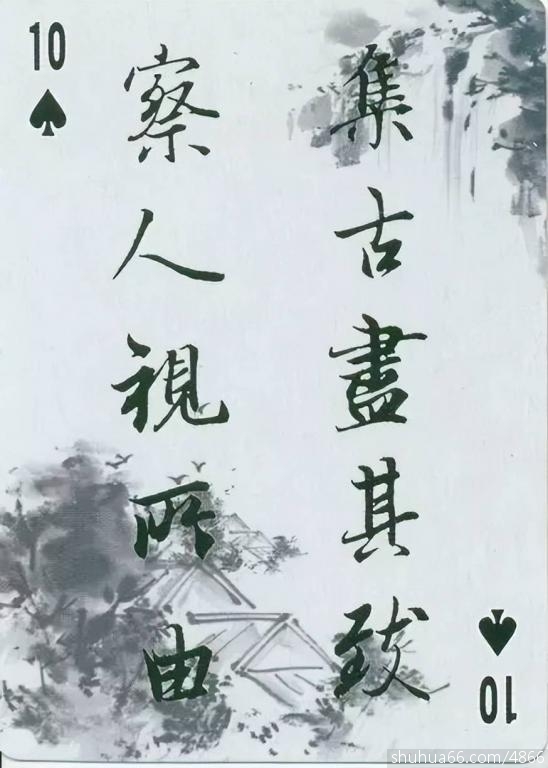 10
集古盡其致
察人視所由
10
shuhua66.com/4866